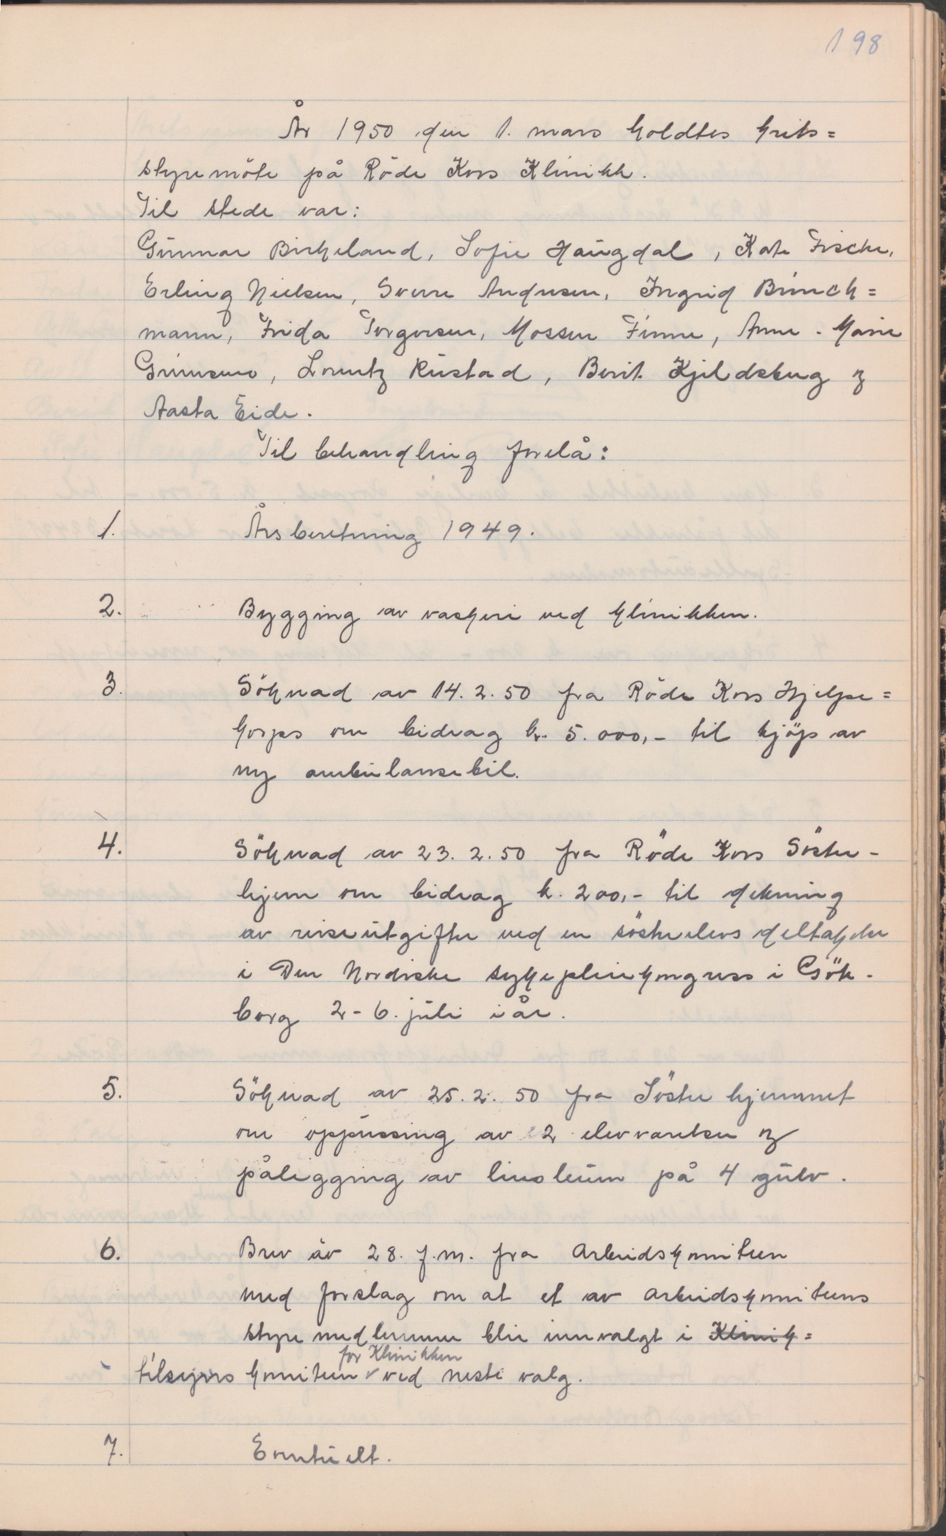 198
År 1950 den 1. mars holdtes krets=
styremöte på Röde Kors Klinikk.
Til stede var:
Gunnar Birkeland, Sofie Haugdal, Kate Fischer,
Erling Nielsen, Sverre Andresen, Ingrid Brinch=
mann, Frida Torgersen, Mossen Finne, Anne-Marie
Grimsmo, Lorentz Rustad, Berit Kjeldsberg og
Aasta Eide.
Til behandling forelå:
1. Årsberetning 1949.
2. Bygging av vaskeri ved klinikken.
3. Söknad av 14.2.50 fra Röde Kors Hjelpe=
korps om bidrag kr. 5.000,- til kjöp av
ny ambulansebil.
4. Söknad av 23.2.50 fra Röde Kors Söster-
hjem om bidrag k. 200,- til dekning
av reiseutgifter ved en söstrelevs deltakelse
i Den Nordiske sykepleiekongress i Göte-
borg 2-6. juli i år.
5. Söknad av 25.2.50 fra Söster hjemmet
om oppussing av 2 elevværelser og
påligging av linoleum på 4 gulv.
6. Brev av 28. f.m. fra Arbeidskomiteen
med forslag om at et av arbeidskomiteens
styremedlemmer blir innvalgt i Klinik=
for Klinikken
tilsyns komiteen ved neste valg.
7. Eventuelt.